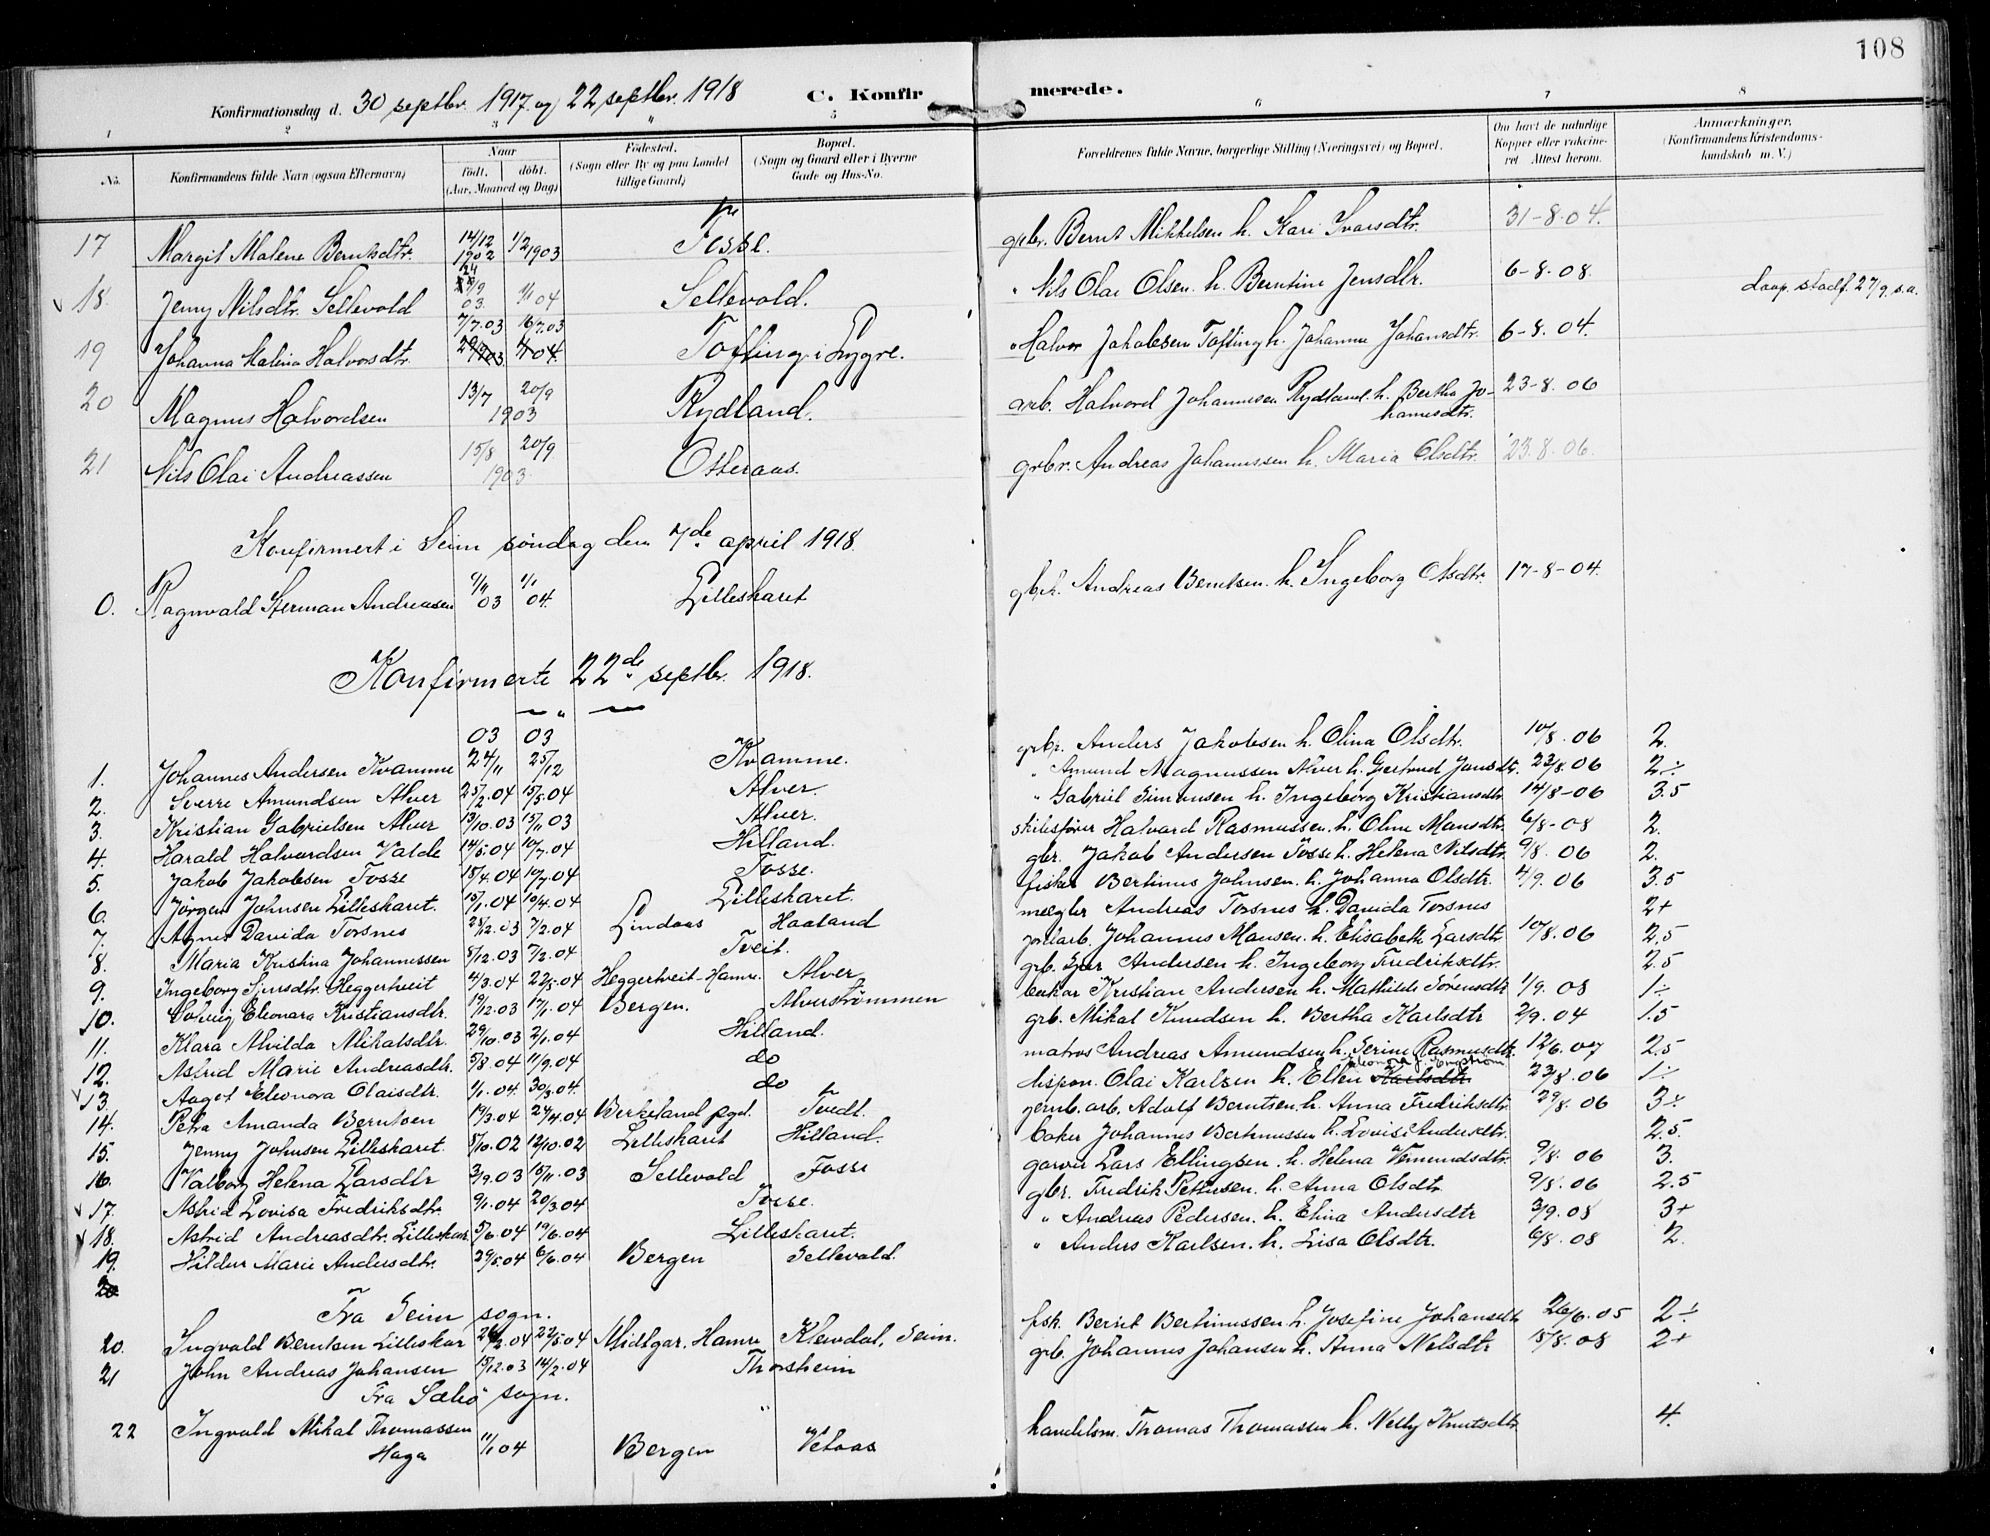 108
Konfirmationsdag d. 30 septbr. 1917. og 22 septbr. 1918 C. Konfirmerede.
1 2 3 4 5 6 7 8
No. Konfirmandens fulde Navn (ogsaa Efternavn) Naar født. døbt. (Aar, Maaned og Dag) Fødested. (Sogn eller By og paa Landet tillige Gaard) Bopæl. (Sogn og Gaard eller i Byerne Gade og Hus-No. Forældrenes fulde Navne, borgerlige Stilling (Næringsvei) og Bopæl. Om havt de naturlige Kopper eller vakcineret. Attest herom. Anmærkninger. (Konfirmandens Kristendomskundskab m. V.)
17 Margit Malene Berntsdtr. 14/12 1902 1/2 1903 Fosse. grbr. Bernt Mikkelsen h. Kari Ivarsdtr. 31-8.04.
18. Jenny Nilsdtr. Sellevold 24/9 03. 1/1 04 Sellevold. " Nils Olai Olsen. h. Berntine Jensdtr. 6-8.08. daap. stadf. 27/9 s.a.
19 Johanna Malina Halvorsdtr. 7/7.03 16/7.03 Tofting i Lygre. " Halvor Jakobsen Tofting h. Johanne Johansdtr. 6-8.04.
20 Magnus Halvordsen 13/7 20/9 1903 Rydland. arb. Halvord Johannesen Rydland. h. Bertha Johannesdtr. 23-8.06
21 Nils Olai Andreassen 15/8 20/9 1903. Osteraas. grbr. Andreas Johannessen h. Maria Olsdtr. 23.8.06.
Konfirmert i Seim søndag den 7de april 1918.
0. Ragnvald Herman Andreasen 03 1/1 04. Lilleskaret grbr. Andreas Berntsen. h. Ingeborg Olsdtr. 17-8-04.
Konfirmerte 22de septbr. 1918.
03 03
1. Johannes Andersen Kvamme 24/11 25/12 Kvamme. grbr. Anders Jakobsen h. Olina Olsdtr. 10/8.06 2.
2. Sverre Amundsen Alver 25/2.04 15/5.04 Alver. " Amund Magnussen Alver h. Gjertrud Jansdtr. 23/8.06 2÷
3. Kristian Gabrielsen Alver 13/10.03 15/11 03 Alver. " Gabriel Simonsen h. Ingeborg Kristiansdtr 14/8-06 3.5
4. Harald Halvardsen Valde 14/5.04 10/7.04 Hilland. skibsfører Halvard Rasmussen. h. Oline Mansdtr. 6/8-08 2.
5. Jakob Jakobsen Fosse 15/4.04 10/7.04 Fosse. gbr. Jakob Andersen Fosse h. Helena Nilsdtr. 9/8.06 2.
6. Jørgen Johnsen Lilleskaret. 15/1.04 10/4.04 Lilleskaret. fisker Bertinus Johnsen. h. Johanna Olsdtr. 4/9.06 3.5
7. Agnes Davida Torsnes 25/12.03 7/2.04 Lindaas Haaland mægler Andreas Torsnes h. Davida Torsnes 2+
8. Maria Kristina Johannessen 8/12.03 7/2.04 Tveit. jordarb. Johannes Monsen. h. Elisabeth Larsdtr. 10/8.06 2.5
9. Ingeborg Sjursdtr. Heggertveit 4/3.04 22/5.04 Heggertveit-Hamre. Alver grb. Sjur Andersen h. Ingeborg Fredriksdtr. 2.5
10. Solveig Eleonara Kristiansdtr. 19/12.03 17/1.04 Bergen. Alverstrømmen Kristian Andersen h. Mathilde Sørensdtr 1/9.08 1÷
11. Klara Alvilda Mikalsdtr. 29/10.03 2/1.04 Hilland. grb. Mikal Knudsen h. Bertha Karlsdtr 2/9.04 1.5
12. Astrid Marie Andreasdtr. 5/8.04 11/9.04 do matros Andreas Amundsen h. Serine Rasmusdtr. 12/6.07 2.5
13. Aagot Eleonora Olaisdtr. 1/1.04. 30/3.04. do dispon. Olai Karlsen h. Ellen Karlsdtr Eleonora f. Engstrøm 23/8.06 1÷
14. Petra Amanda Berntsen 19/3.04 24/4.04 Birkeland pgd. Tvedt. jernb. arb. Adolf Berntsen. h. Anna Fredriksdtr. 29/8.06 3+
15. Jenny Johnsen Lilleskaret. 5/10.02 12/10.02 Lilleskaret Hilland. baker Johannes Bertinussen h. Lovise Andersdtr. 2.5.
16. Valborg Helena Larsdtr 3/9.03 15/11.03 Sellevold Fosse garver Lars Ellingsen. h. Helena Vemundsdtr. 9/8.06 3.
17. Astrid Lovisa Fredriksdtr. 9/1.04 20/3.04 Fosse. gbr. Fredrik Pettersen. h. Anna Olsdtr. 9/8.06 2.5
18. Astrid Andreasdtr. Lilleskar. 5/6.04 19/6.04 Lilleskaret. " Andreas Pedersen. h. Elina Andersdtr 3/9.08 3+
19. Hildur Marie Andersdtr. 29/5.04 6/6.04 Bergen Sellevold. " Anders Karlsen. h. Lisa Olsdtr. 6/8.08 2.
20
Fra Seim sogn.
20. Ingvald Berntsen Lilleskar 04 22/5.04 Midtgar. Hamre Kleivdal, Seim. fisk. Bernt Bertinussen h. Josefine Johansdtr 26/6.05 2÷
21 John Andreas Johansen 15/12.03 14/2.04 Thorsheim grb. Johannes Johansen h. Anna Nilsdtr 15/8.08 2+
Fra Sæbø sogn.
22 Ingvald Mikal Thomassen Haga 11/1 04 Bergen Vetaas handelsm. Thomas Thomassen h. Nelly Knutsdtr. 4.